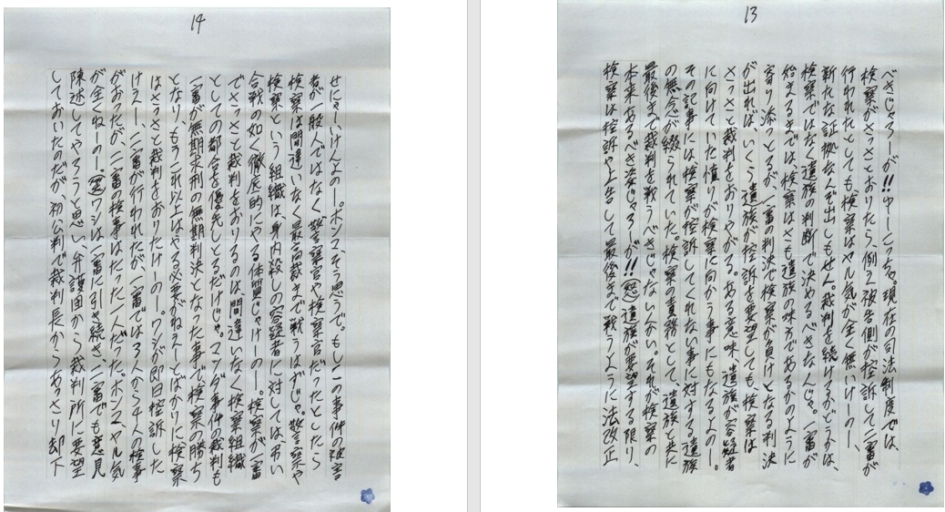 13
べきじゃろーが!!ゆーこっちゃ。現在の司法制度では、
検察がさっさとおりたら、例え被告側が控訴して二審が
行われたとしても、検察はヤル気が全く無いけーのー、
新たな証拠なんぞ出しもせん。裁判を続けるかどうかは、
検察ではなく遺族の判断で決めるべきなんじゃ。一審が
始まるまでは、検察はさも遺族の味方であるかのように
寄り添っとるが、一審の判決で検察が負けとなる判決
が出れば、いくら遺族が控訴を要望しても、検察は
さっさと裁判をおりやがる。ある意味、遺族が容疑者
に向けていた憤りが検察に向かう事にもなるよのー。
その記事には検察が控訴してくれない事に対する、遺族
の無念が綴られていた。検察の責務として、遺族と共に
最後まで裁判を戦うべきじゃないんかい。それが検察の
本来あるべき姿じゃろーが!!(怒)遺族が要望する限り、
検察は控訴や上告して最後まで戦うように法改正
14
せにゃーいけんよのー。ホンマそう思うで。もしこの事件の被害
者が一般人ではなく警察官や検察官だったとしたら
検察は間違いなく最高裁まで戦うはずじゃ。警察や
検察という組織は、身内殺しの容疑者に対しては、弔い
合戦の如く徹底的にやる体質じゃけーのー。検察が一審
でさっさと裁判をおりるのは、間違いなく検察組織
としての都合を優先しとるだけじゃ。マツダ事件の裁判も
一審が無期求刑の無期判決となった事で、検察の勝ち
となり、もうこれ以上はやる必要がねえーとばかりに検察
はさっさと裁判をおりたけーのー。ワシが即日控訴した
けえー、二審が行われたが、一審では3人から4人の検事
がおったが、二審の検事はたった一人だった。ホンマ、ヤル気
が全くねーのー。(怒)ワシは、一審に引き続き、二審でも意見
陳述してやろうと思い、弁護団から裁判所に要望
しておいたのだが、初公判で裁判長からあっさり却下